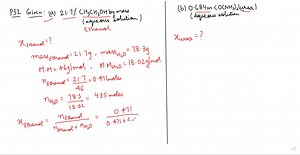 P32 Given: (a) 21.7% CH₃CH₂OH by mass
(aqueous solution)
Ethanol
x ethanol = ?
mass ethanol = 21.7g, mass H₂O = 78.3g
M.M = 46g/mol, M.M H₂O = 18.02g/mol
n ethanol = 21.7/46 = 0.471 moles
n H₂O = 78.3/18.02 = 4.35 moles
x Ethanol = n Ethanol / n Ethanol + n H₂O = 0.471 / 0.471+4.
(b) 0.684m CO(NH₂)₂ (urea)
(aqueous solution)
x urea = ?